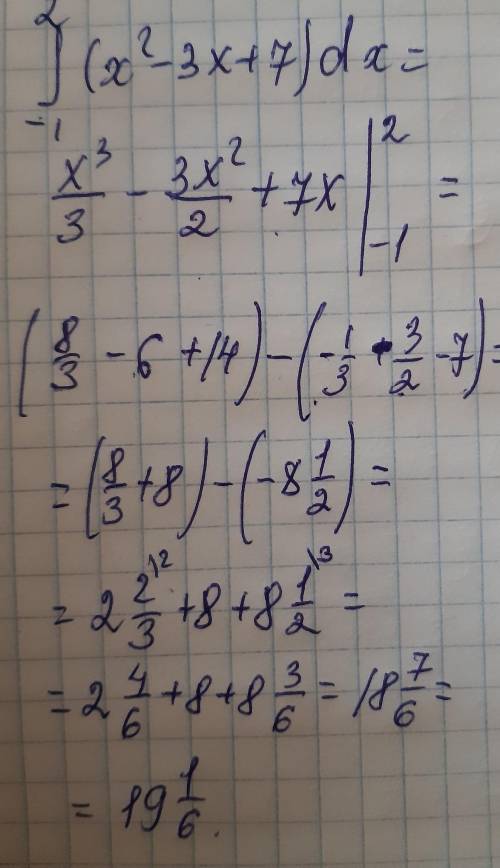 ∫₋₁² (x² - 3x + 7) dx =
x³/3 - 3x²/2 + 7x |₋₁² =
(8/3 - 6 + 14) - (-1/3 - 3/2 - 7) =
= (8/3 + 8) - (-8 1/2) =
= 2 2/3 \2 + 8 + 8 1/2 \3 =
= 2 4/6 + 8 + 8 3/6 = 18 7/6 =
= 19 1/6.